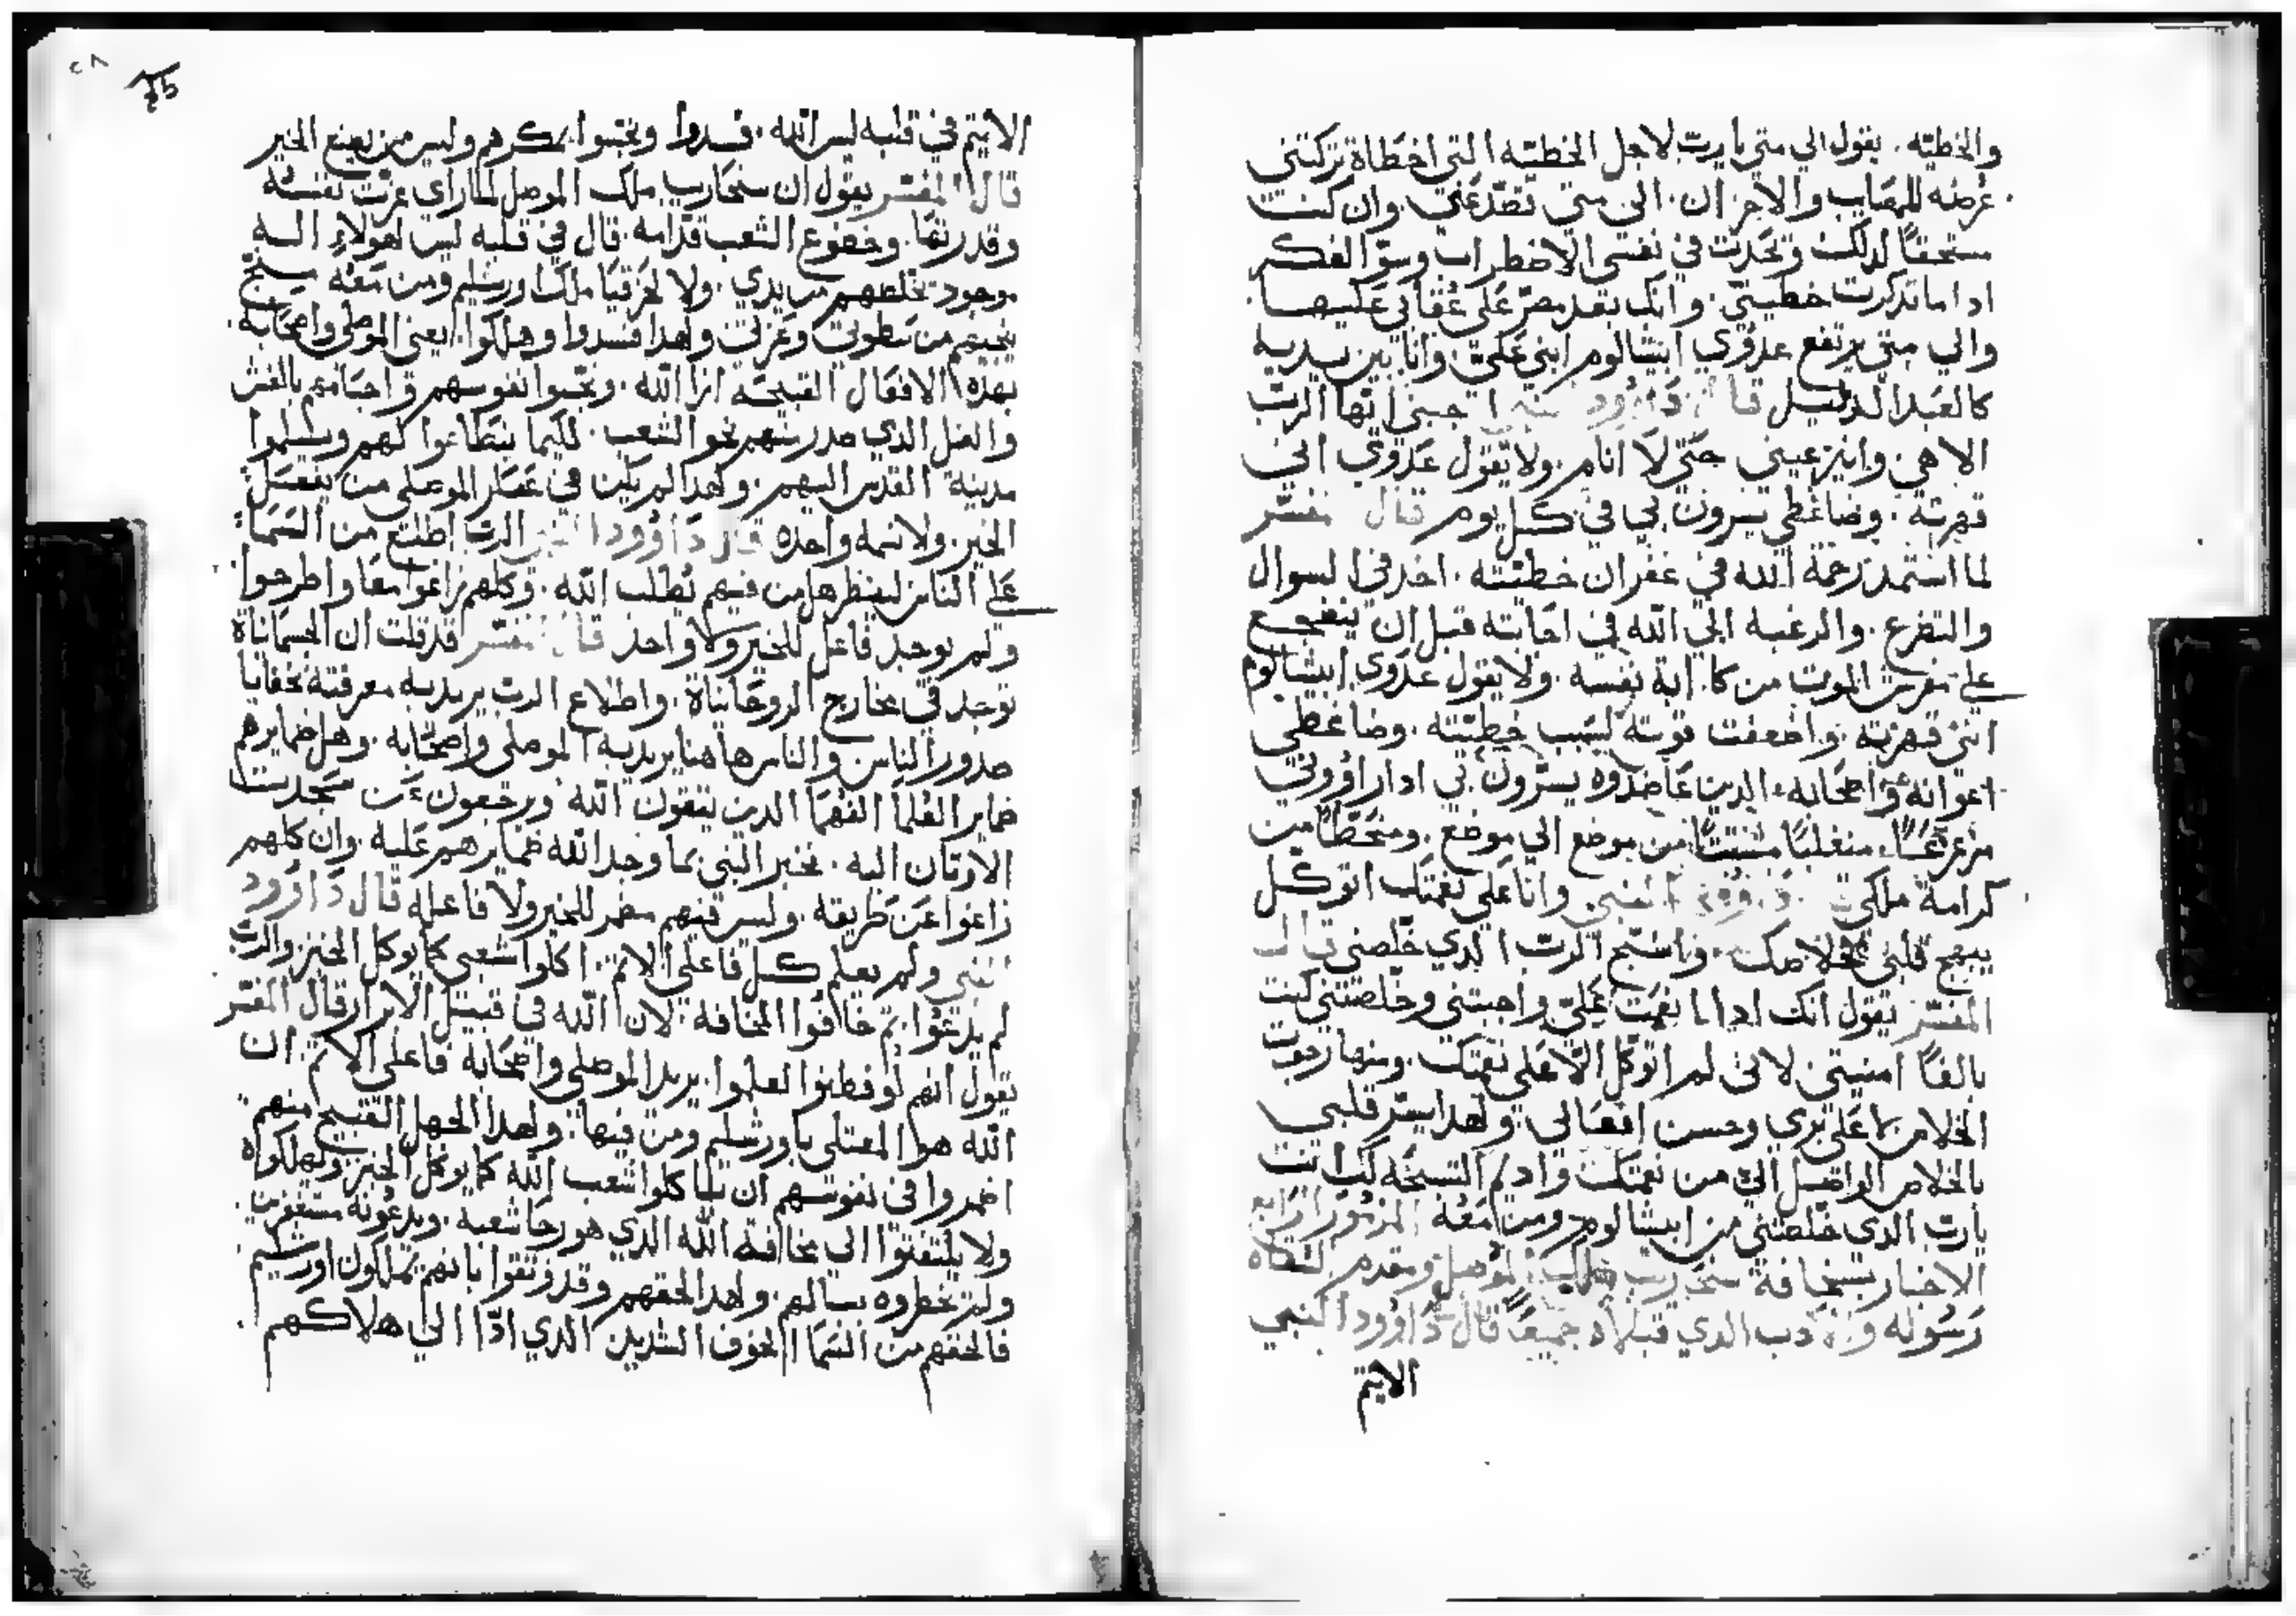 والخطيّه . يقول الي متي يا رب لاجل الخطيّه التي اخطاة تركتني
عرضه للمصايب والاحزان . الى متي تصدّ عني . وان كنت
مستحقاً لدلك وتحدث في نفسي الاضطراب وسوّ الفكر
ادا ما تدكرت خطيتي . وانك بعد مصرّ علي عقابي عليها
والي متي يرتفع عدوّي ابيشالوم ابني عليّ وانا بين يديه
كالعبد الدليل قال داوود النبي اجبني ايّها الربّ
الاهي وانر عيني حتّي لا انام ولا يقول عدوّي اني
قهرته . وضاغطي يسرون بي في كل يوم قال المفسّر
لما استمد رحمة الله في غفران خطيّته . اخد في السوال
والتضرع . والرغبه الي الله في اجابته قبل ان ينضجع
علي الموت من كابة نفسه . ولا يقول عدوي ابيشالوم
انني قهرته واضعفت قوته لسبب خطيّته . وضاغطي
اعوانه واصحابه الدين عاضدوه يسرّون بي ادا راووني
مزعزعاً منغلباً مشتتاً من موضع الي موضع . ومنحطاً من
كرامة ملكي داوود النبي وانا علي نعمتك اتوكل
يبهج قلبي بخلاصك . واسبّح الربّ الدي خلّصني قال
المفسّر يقول انك ادا انعمت عليّ واجبتني وخلّصتني كنت
بالغاً امنيتي لانى لم اتوكل الّا علي نعمتك . ومنها رجوت
الخلاص لا علي برّي وحسن افعالي . ولهدا يسرّ قلبي
بالخلاص الواصل اليّ من نعمتك واديم التسبحه لك انت
يارب الدي خلصتني من ابيشالوم ومن معه المزمور الرابع
الاخبار بسخافة سنحاريب ملك الموصل ومقدم السقاه
رسوله الدي قبلاه جميعاً قال داوود النبي
الاثيم
الاثيم في قلبه ليس الله . فسدوا ونجّسوا بمكرهم وليس من يصنع الخير
قال المفسّر يقول ان سنحاريب ملك الموصل لما راي عزّت نفسه
وقدرتها . وخضوع الشعب قدّامه . قال في قلبه ليس لهولاء اله
موجود يخلصهم من يدي . ولا لحزقيا ملك اورشليم ومن معه
ينجيهم من سطوتي وعزتي ولهدا فسدوا وهلكوا . يعني الموصلي واصحابه .
بهده الافعال القبيحه ازا الله . ونجّسوا نفوسهم واجسامهم بالغش
والغل الدي صدر منهم نحو الشعب . لكيما يتطاعوا لهم ويسلموا
مدينة القدس اليهم . ولهدا لم يكن في عسكر الموصلي من يفعل
الخير . ولا نسمه واحده قال داوود النبي الربّ اطلع من السما
علي الناس لينظر هل من فيهم يُطلب الله . وكلهم زاغوا معا واطرحوا
ولم يوجد فاعل للخير ولا واحد قال المفسّر قد قلت ان الجسمانياة
توجد في مخارج الروحانياة . واطلاع الربّ يريد به معرفته بخفايا
صدور الناس والناس هاهنا يريد به الموصلي واصحابه . وهل ضمايرهم
ضماير العلما الفهما الدين يتقون الله ويرجعون عن سجدت
الاوثان اليه . يخبر النبي بما وجد الله ضمايرهم عليه . وان كلهم
زاغوا عن طريقه . وليس فيهم مضمر للخير ولا فاعله قال داوود
النبي ولم يعلم كل فاعلي الاثم . اكلوا شعبي كما يوكل الخبز والربّ
لم يدعوا . ثم خافوا المخافة . لان الله في قبيل الابرار قال المفسّر
يقول انهم لو فطنوا لعلموا . يريد الموصلي واصحابه فاعلي الاثم . ان
الله هو المعتلي باورشليم ومن فيها . ولهدا الجهل القبيح منهم
اضمروا في نفوسهم ان ياكلوا شعب الله كما يوكل الخبز ويهلكوه
ولا يلتفتوا الي مخافة الله الدي هو رجا شعبه . ويدعونه مستغفرين
ولم يخطروه ببالهم . ولهدا لحقهم وقد وثقوا بانهم يملكون اورشليم
فالحقهم من السما الخوف الشديد الدي ادّا الي هلاكهم